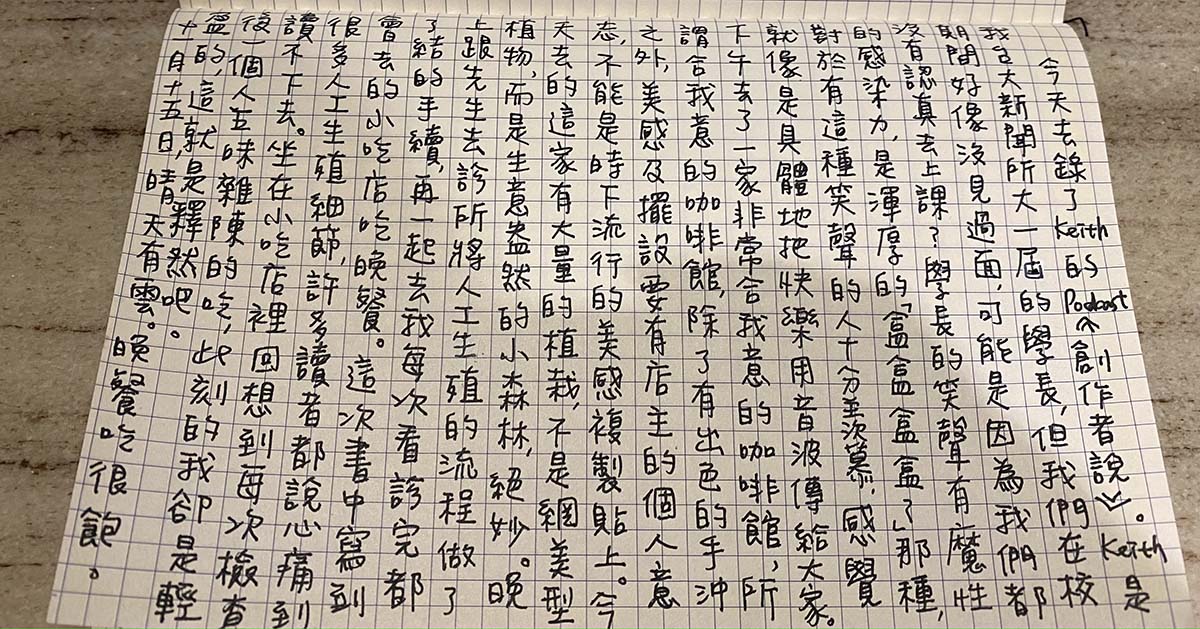 今天去錄了Keith的Podcast《創作者說》。Keith是
我台大新聞所大一屆的學長,但我們在校
期間好像沒見過面,可能是因為我們都
沒有認真去上課?學長的笑聲有魔性
的感染力,是渾厚的「盒盒盒盒」那種,
對於有這種笑聲的人十分羨慕,感覺
就像是具體地把快樂用音波傳給大家。
下午去了一家非常合我意的咖啡館,所
謂合我意的咖啡館,除了有出色的手沖
之外,美感及擺設要有店主的個人意
态,不能是時下流行的美感複製貼上。今
天去的這家有大量的植栽,不是網美型
植物,而是生意盎然的小森林,絕妙。晚
上跟先生去診所將人工生殖的流程做了
了結的手續,再一起去我每次看診完都
會去的小吃店吃晚餐。這次書中寫到
很多人工生殖細節,許多讀者都說心痛到
讀不下去。坐在小吃店裡回想到每次檢查
後一個人五味雜陳的吃,此刻的我卻是輕
盈的,這就是釋然吧。
十月十五日,晴天有雲。晚餐吃很飽。